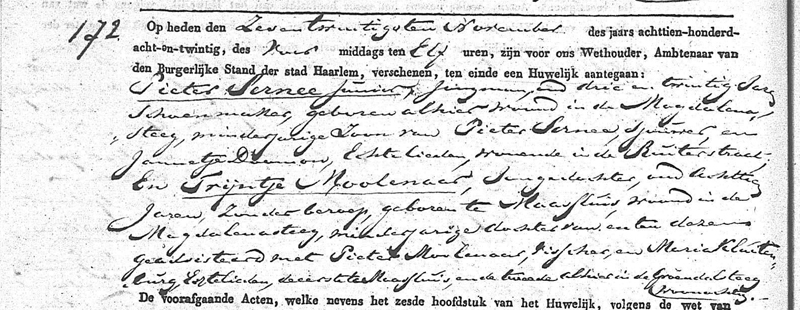 172. Op heden den Zevenentwintigsten November des jaars achttien-honderd-
acht-on-twintig, des Voor middags ten Elf uren, zijn voor ons Wethouder, Ambtenaar van
den Burgerlijke Stand der stad Haarlem, verschenen, ten einde een Huwelijk aantegaan:
Pieter Sernee Junior, Jongman, oud drie en twintig Jaren
Schoenmaker, geboren alhier woond in de Magdalena-
steeg, minderjarige Zoon van Pieter Sernee, en
Jannetje, Echtelieden, wonende in de Ruiterstraat,
En Trijntje Moolenaar, Jongedochter, oud achttien
Jaren, Zonder beroep, geboren te Maassluis, woond in de
Magdalenasteeg, minderjarige dochter van, en ten dezen
geadsisteerd met Pieter Moolenaar, Visscher, en Maria Kluiten-
burg, Echtelieden, de eerste te Maassluis, en de tweede alhier in de Groendalsteeg
woonachtig.
De voorafgaande Acten, welke nevens het zesde hoofdstuk van het Huwelijk, volgens de wet van